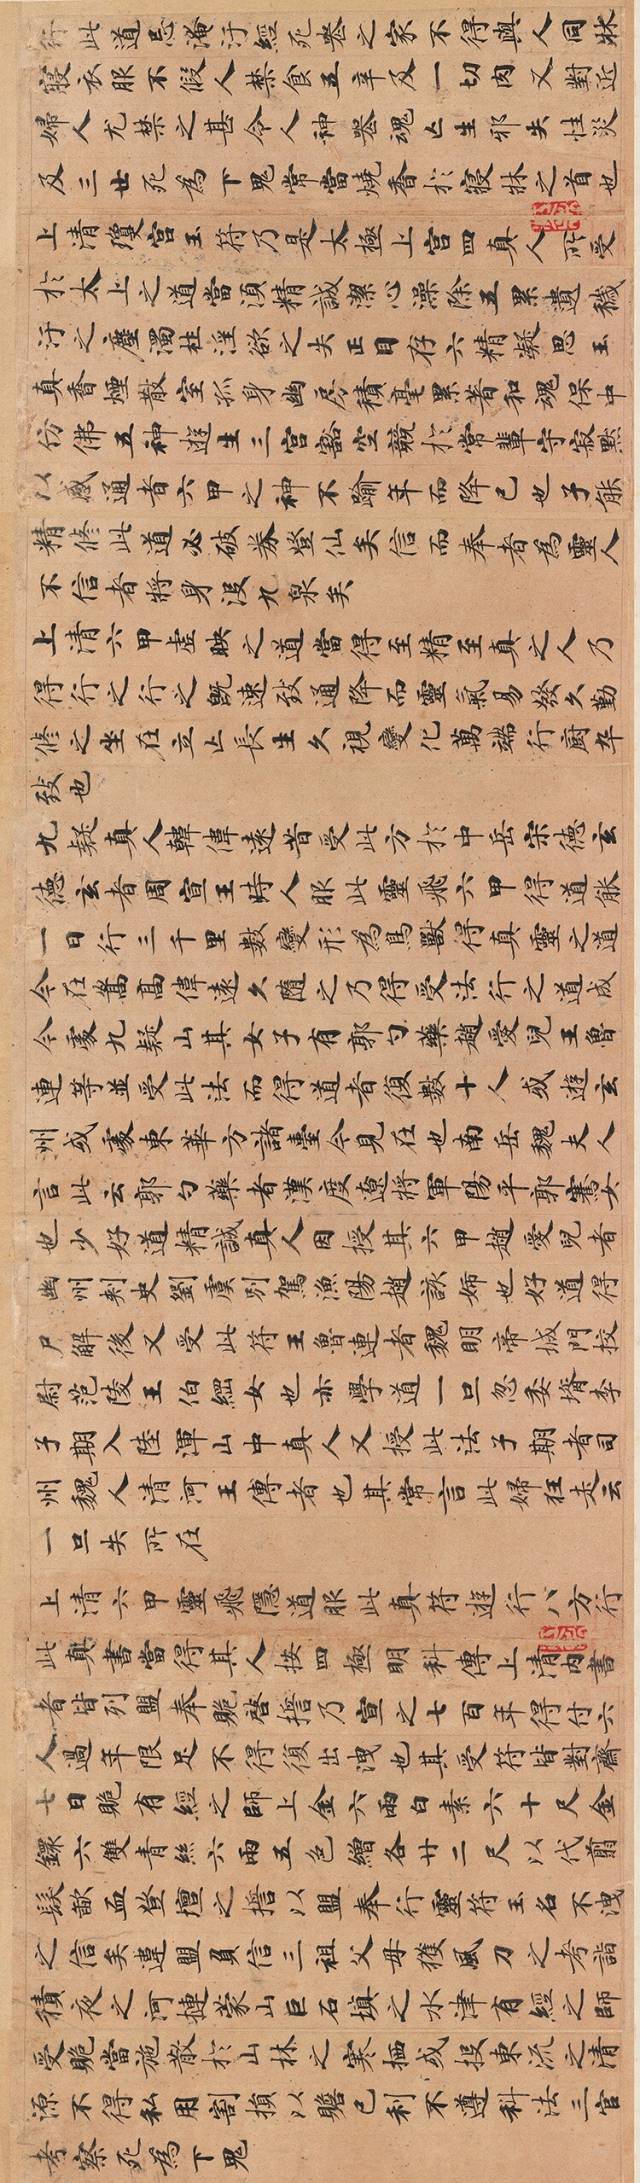 行此道忌淹汙經死喪之家不得與人同牀
寢衣服不假人禁食五辛及一切肉又對近
婦人尤禁之甚令人神喪魂亡生邪失性災
及三世死為下鬼常當燒香於寢牀之首也
上清瓊宮玉符乃是太極上宮四真人所受
於太上之道當須精誠潔心澡除五累遺穢
汙之塵濁杜淫欲之失正目存六精凝思玉
真香煙散室孤身幽房積毫累著和魂保中
仿佛五神遊生三宮豁空競於常輩守寂默
以感通者六甲之神不踰年而降已也子能
精修此道必破券登仙矣信而奉者為靈人
不信者將身沒九泉矣
上清六甲虛映之道當得至精至真之人乃
得行之行之既速致通降而靈氣易發久勤
修之坐在立亡長生久視變化萬端行廚卒
致也
九疑真人韓偉遠昔受此方於中岳宋德玄
德玄者周宣王時人服此靈飛六甲得道能
一日行三千里數變形為鳥獸得真靈之道
今在嵩高偉遠久隨之乃得受法行之道成
今處九疑山其女子有郭勺藥趙愛兒王魯
連等並受此法而得道者復數十人或遊玄
州或處東華方諸臺今見在也南岳魏夫人
言此云郭勺藥者漢度遼將軍陽平郭騫女
也少好道精誠真人因授其六甲趙愛兒者
幽州刺史劉虞別駕漁陽趙該姊也好道得
尸解後又受此符王魯連者魏明帝城門校
尉范陵王伯綱女也亦學道一旦忽委壻李
子期入陸渾山中真人又授此法子期者司
州魏人清河王傳者也其常言此婦狂走云
一旦失所在
上清六甲靈飛隱道服此真符遊行八方行
此真書當得其人按四極明科傳上清內書
者皆列盟奉跪啓誓乃宣之七百年得付六
人過年限足不得復出洩也其受符皆對齋
七日賜有經之師上金六兩白素六十尺金
鐶六雙青絲六兩五色繒各廿二尺以代翦
髮歃血登壇之誓以盟奉行靈符玉名不洩
之信矣違盟負信三祖父母獲風刀之考詣
積夜之河摙蒙山巨石填之水津有經之師
受賜當施散於山林之寒栖或投東流之清
源不得私用割損以贍己利不遵科法三官
考察死為下鬼